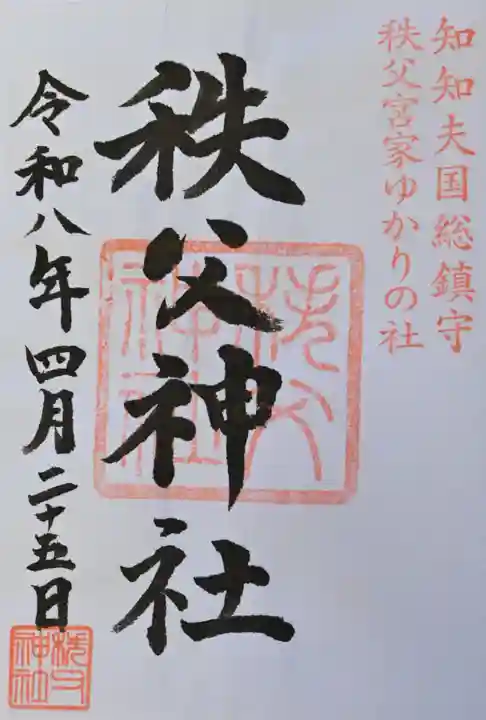 知知夫国総鎮守
秩父宮家ゆかりの社
秩父神社
秩父神社
令和八年四月二十五日
秩父神社